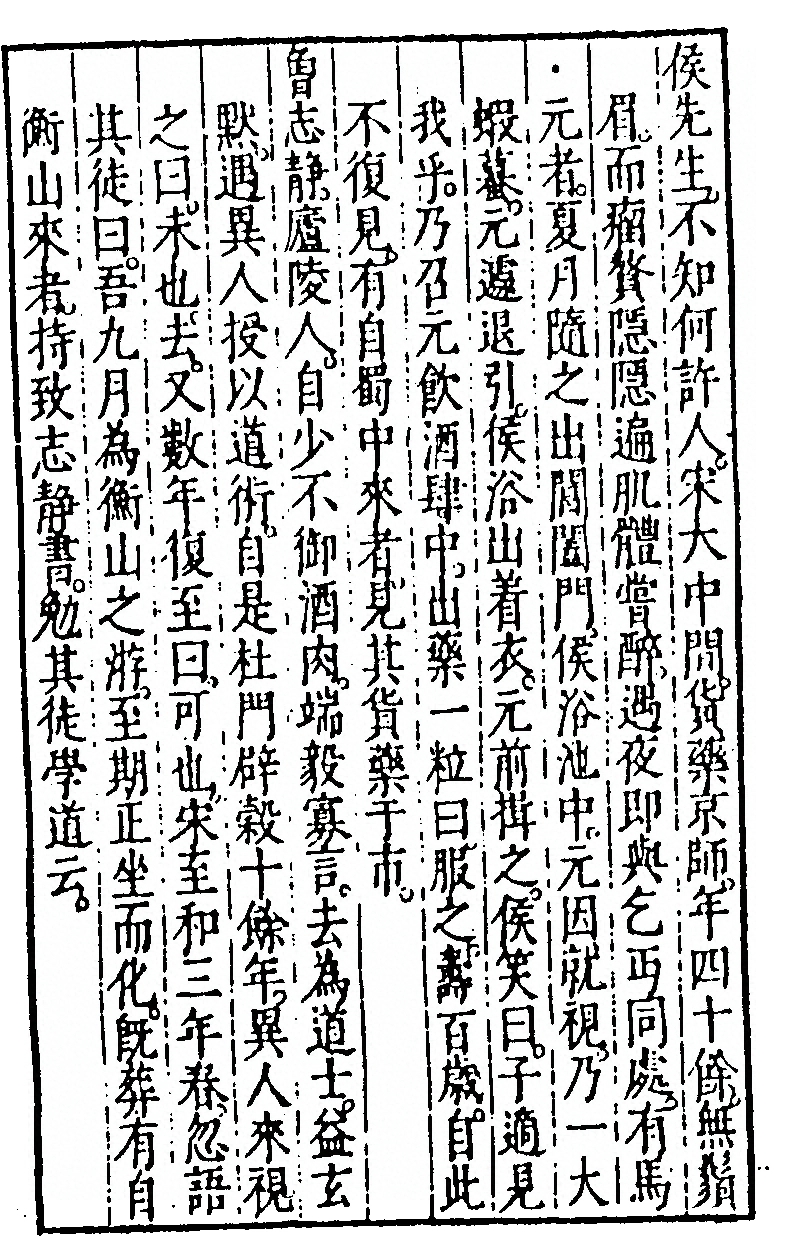 侯先生。不知何許人。宋大中間。貨藥京師。年四十餘。無鬚
眉。而瘤贅隱隱遍肌體嘗醉。遇夜即與乞丐同處。有馬
元者。夏月隨之出閶闔門。侯浴池中。元因就視。乃一大
蝦蟇。元遽退引。侯浴出着衣。元前揖之。侯笑曰。子適見
我乎。乃召元飲酒肆中。出藥一粒曰服之。壽百歲。自此
不復見。有自蜀中來者。見其貨藥于市。
魯志静。廬陵人。自少不御酒肉。端毅寡言。去為道士。益玄
默。遇異人授以道術。自是杜門辟穀十餘年。異人來視
之曰。未也。去。又數年復至曰。可也。宋至和三年春。忽語
其徒曰。吾九月為衡山之游。至期正坐而化。旣葬有自
衡山來者。持致志静書。勉其徒學道云。